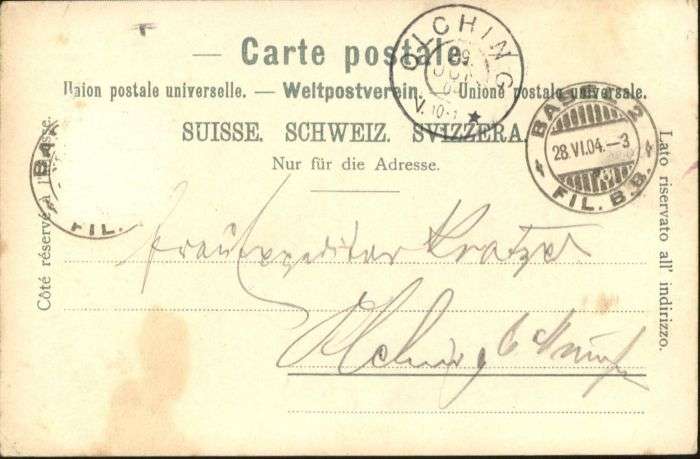 — Carte postale.
Union postale universelle. — Weltpostverein. — Unione postale universale.
SUISSE. SCHWEIZ. SVIZZERA.
Nur für die Adresse.
Côté réservé à l'adresse.
Lato riservato all' indirizzo.
OLCHING
29
JUN
04
V. 10-1
BASEL 2
28.VI.04.–3
FIL. B.B.
BA
FIL.
Frau Expeditor Kratzer
Olching b. Münch